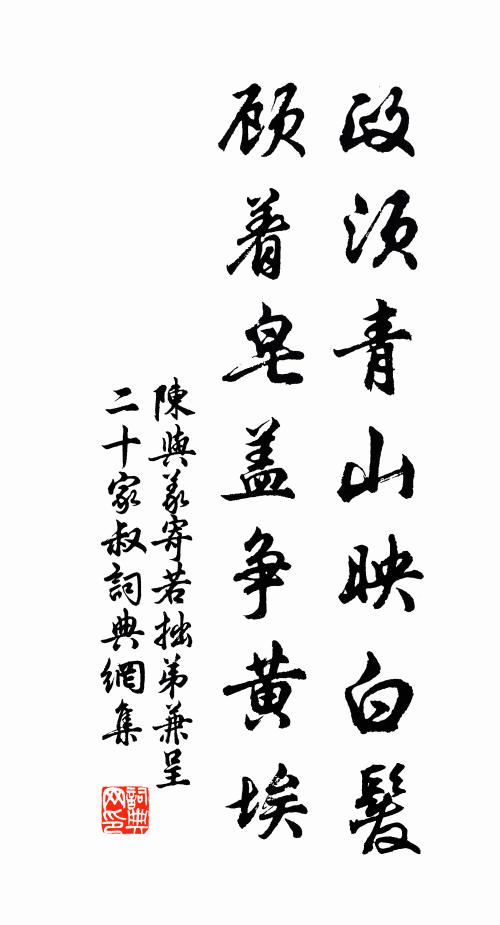 政须青山映白髮
顾着皂盖争黄埃
陳與義寄若拙弟兼呈
二十家叔詞典網集
詞典网印